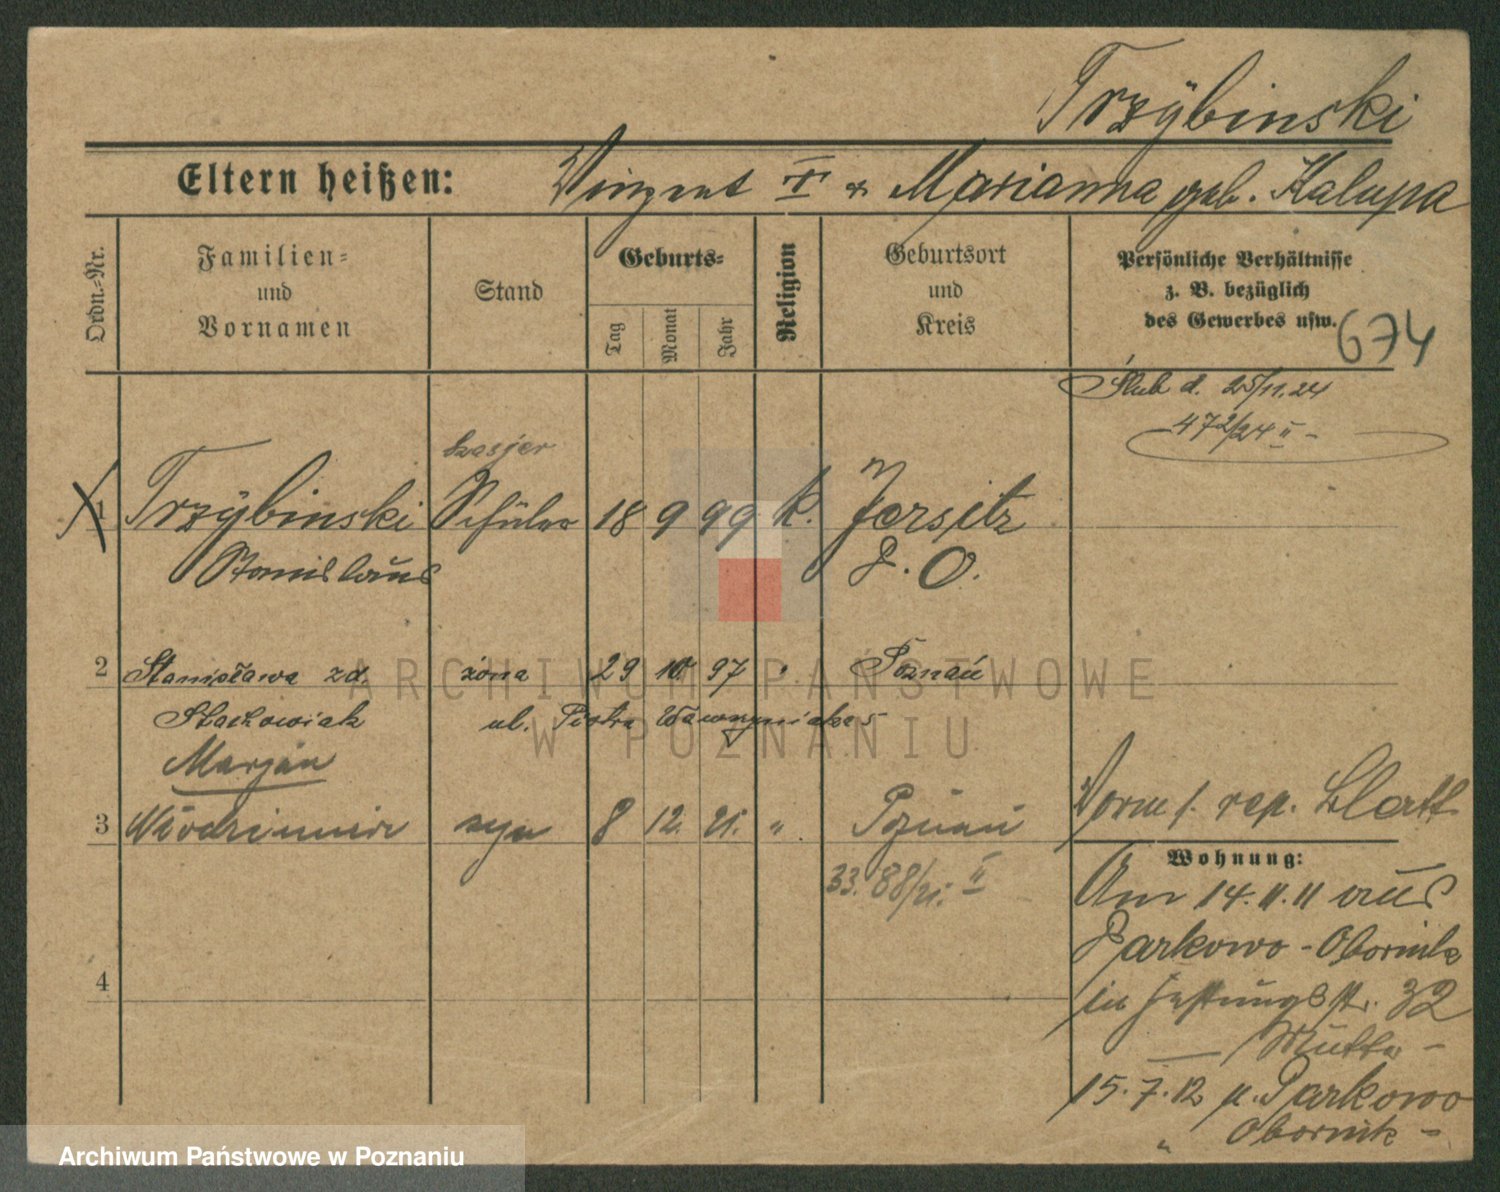 Trzÿbinski
Eltern heißen: Vinzent T & Marianna geb. Kalupa
Ordn.-Nr.
Familien-
und
Vornamen
Stand
Geburts-
Tag
Monat
Jahr
Religion
Geburtsort
und
Kreis
Persönliche Verhältnisse
z. B. bezüglich
des Gewerbes usw.
674
Ślub d. 25/11.24
472/24 II -
1 Trzÿbinski Schüler 18 9 99 k. Jersitz
Stanislaus P. O.
2 Stanisława zd. żona 29 10. 97 " Poznań
Stachowiak ul. Piotra Wawrzyniaka 5
Marjan
3 Włodzimierz syn 8 12. 21. " Poznań
33. 88/21. II
Vorm f. rep. Blatt
Wohnung:
Am 14.11.11 aus
Parkowo - Obornik
in Festungsstr. 32
Mutter -
15.7.12 n. Parkowo
" Obornik -
4
ARCHIWUM PAŃSTWOWE
W POZNANIU
Archiwum Państwowe w Poznaniu